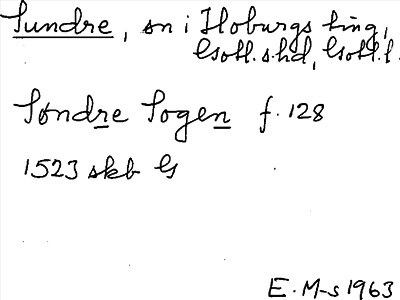 Sundre, sn i Hoburgs ting,
Gotl.s.hd, Gotl.l.
Søndre Sogen f. 128
1523 skb G
E. M-s 1963